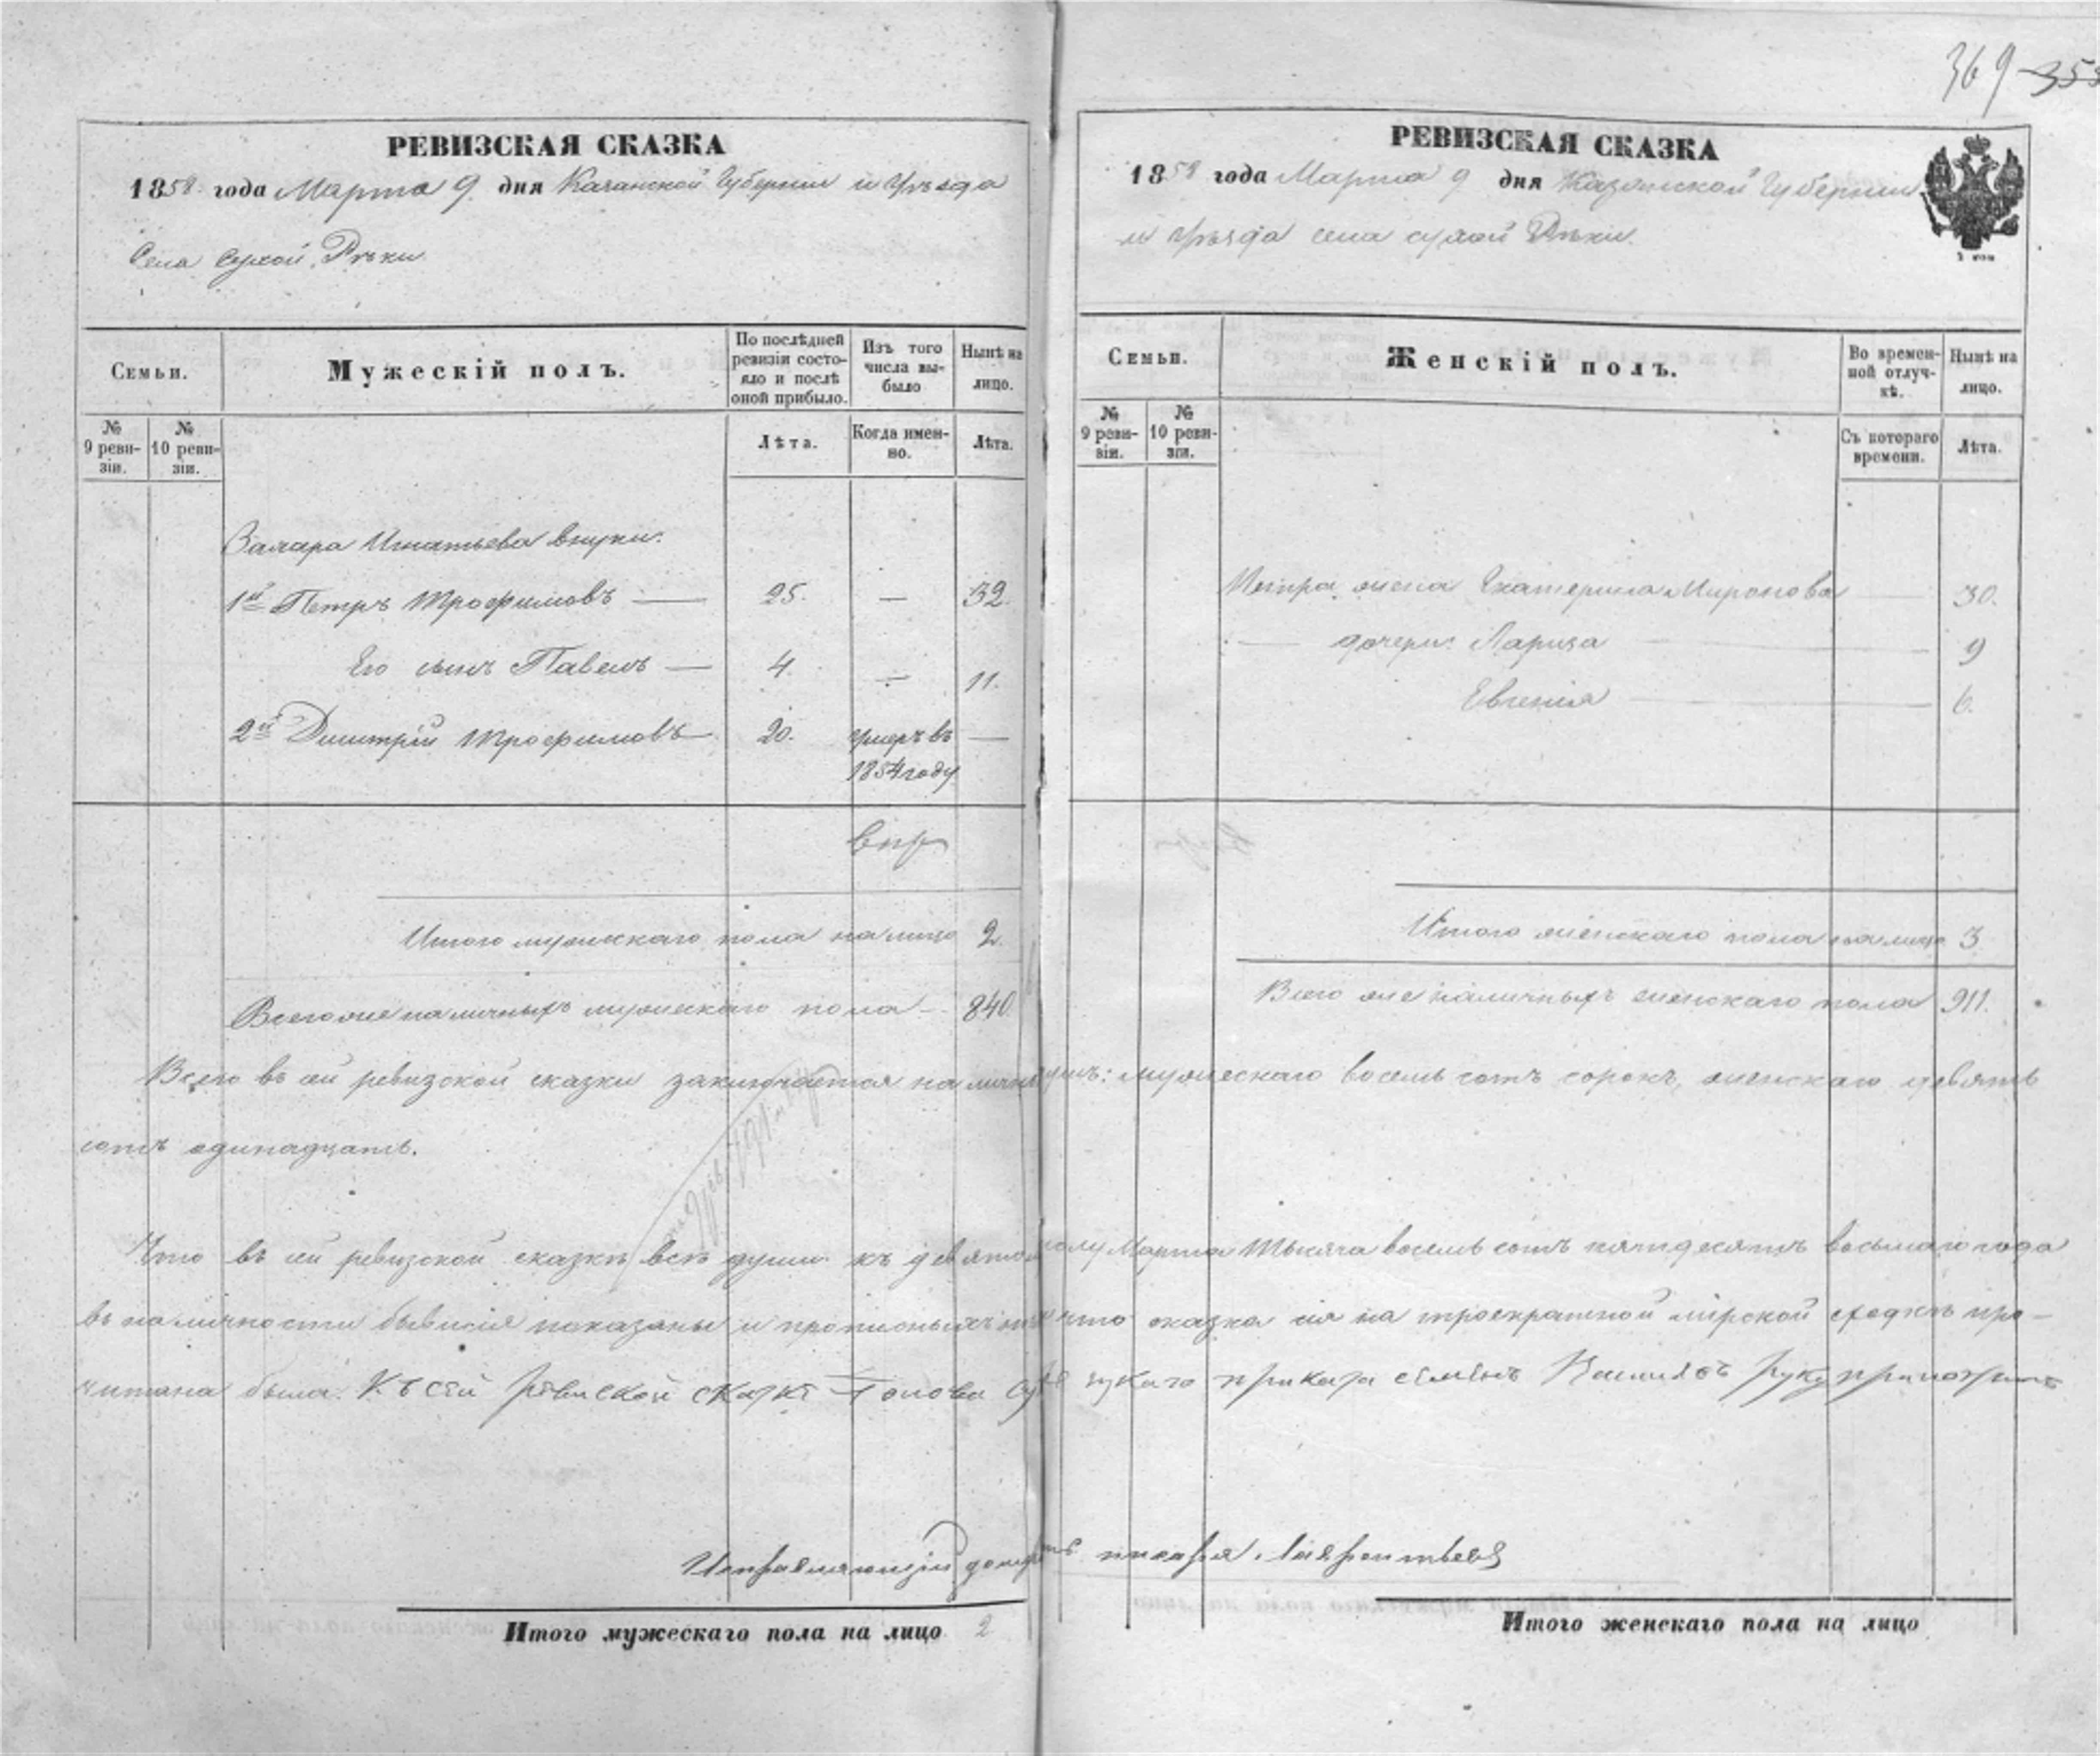 369 353
РЕВИЗСКАЯ СКАЗКА
1858 года Марта 9 дня Казанской Губернии и Уѣзда
Села Сухой Рѣки
Семьи.
Мужескій полъ.
По послѣдней ревизіи состояло и послѣ оной прибыло.
Изъ того числа выбыло
Нынѣ на лицо.
№ 9 ревизіи.
№ 10 ревизіи.
Лѣта.
Когда именно.
Лѣта.
Игнатьева внуки.
1й Петръ Трофимовъ — 25. — 32.
Его сынъ Павелъ — 4. — 11.
2й Димитрій Трофимовъ — 20. умеръ въ —
1854 году
Итого мужескаго пола на лицо 2.
Всего же наличныхъ мужескаго пола — 840.
РЕВИЗСКАЯ СКАЗКА
1858 года Марта 9 дня Казанской Губернии
и Уѣзда села сухой Рѣки.
Семьи.
Женскій полъ.
Во временной отлучкѣ.
Нынѣ на лицо.
№ 9 ревизіи.
№ 10 ревизіи.
Съ котораго времени.
Лѣта.
Петра жена Екатерина Миронова — 30.
— дочери: Лариса — 9
Евгенія — 6.
Итого женскаго пола на лицо 3
Всего же наличныхъ женскаго пола 911.
Всего въ сей ревизской сказки заключается мужескаго восемь сотъ сорокъ, женскаго девять
сотъ одинадцать.
Что въ сей ревизской сказкѣ всѣ души къ девятому Марта Тысяча восемь сотъ пятидесятъ восьмаго года
въ наличности бывшія показаны и прописныхъ что сказка сія на троекратной мірской сходкѣ про-
читана была. Къ сей ревиской скаске Голова приказа семенъ руку приложилъ
Исправляющій должность писаря Лаврентьевъ
Итого мужескаго пола на лицо 2
Итого женскаго пола на лицо